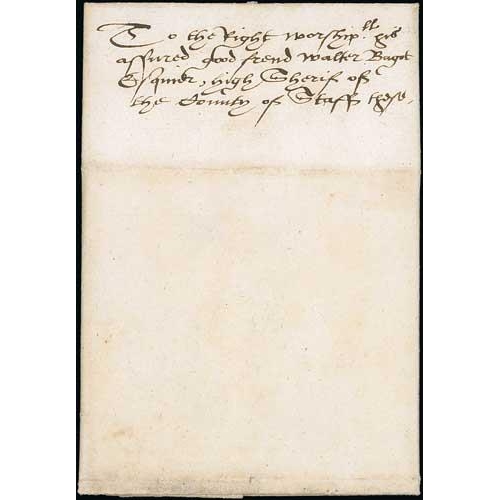 To the Right worship.ll his
assured good frend Walter Bagot
Esquier, high Sherif of
the County of Staff these,